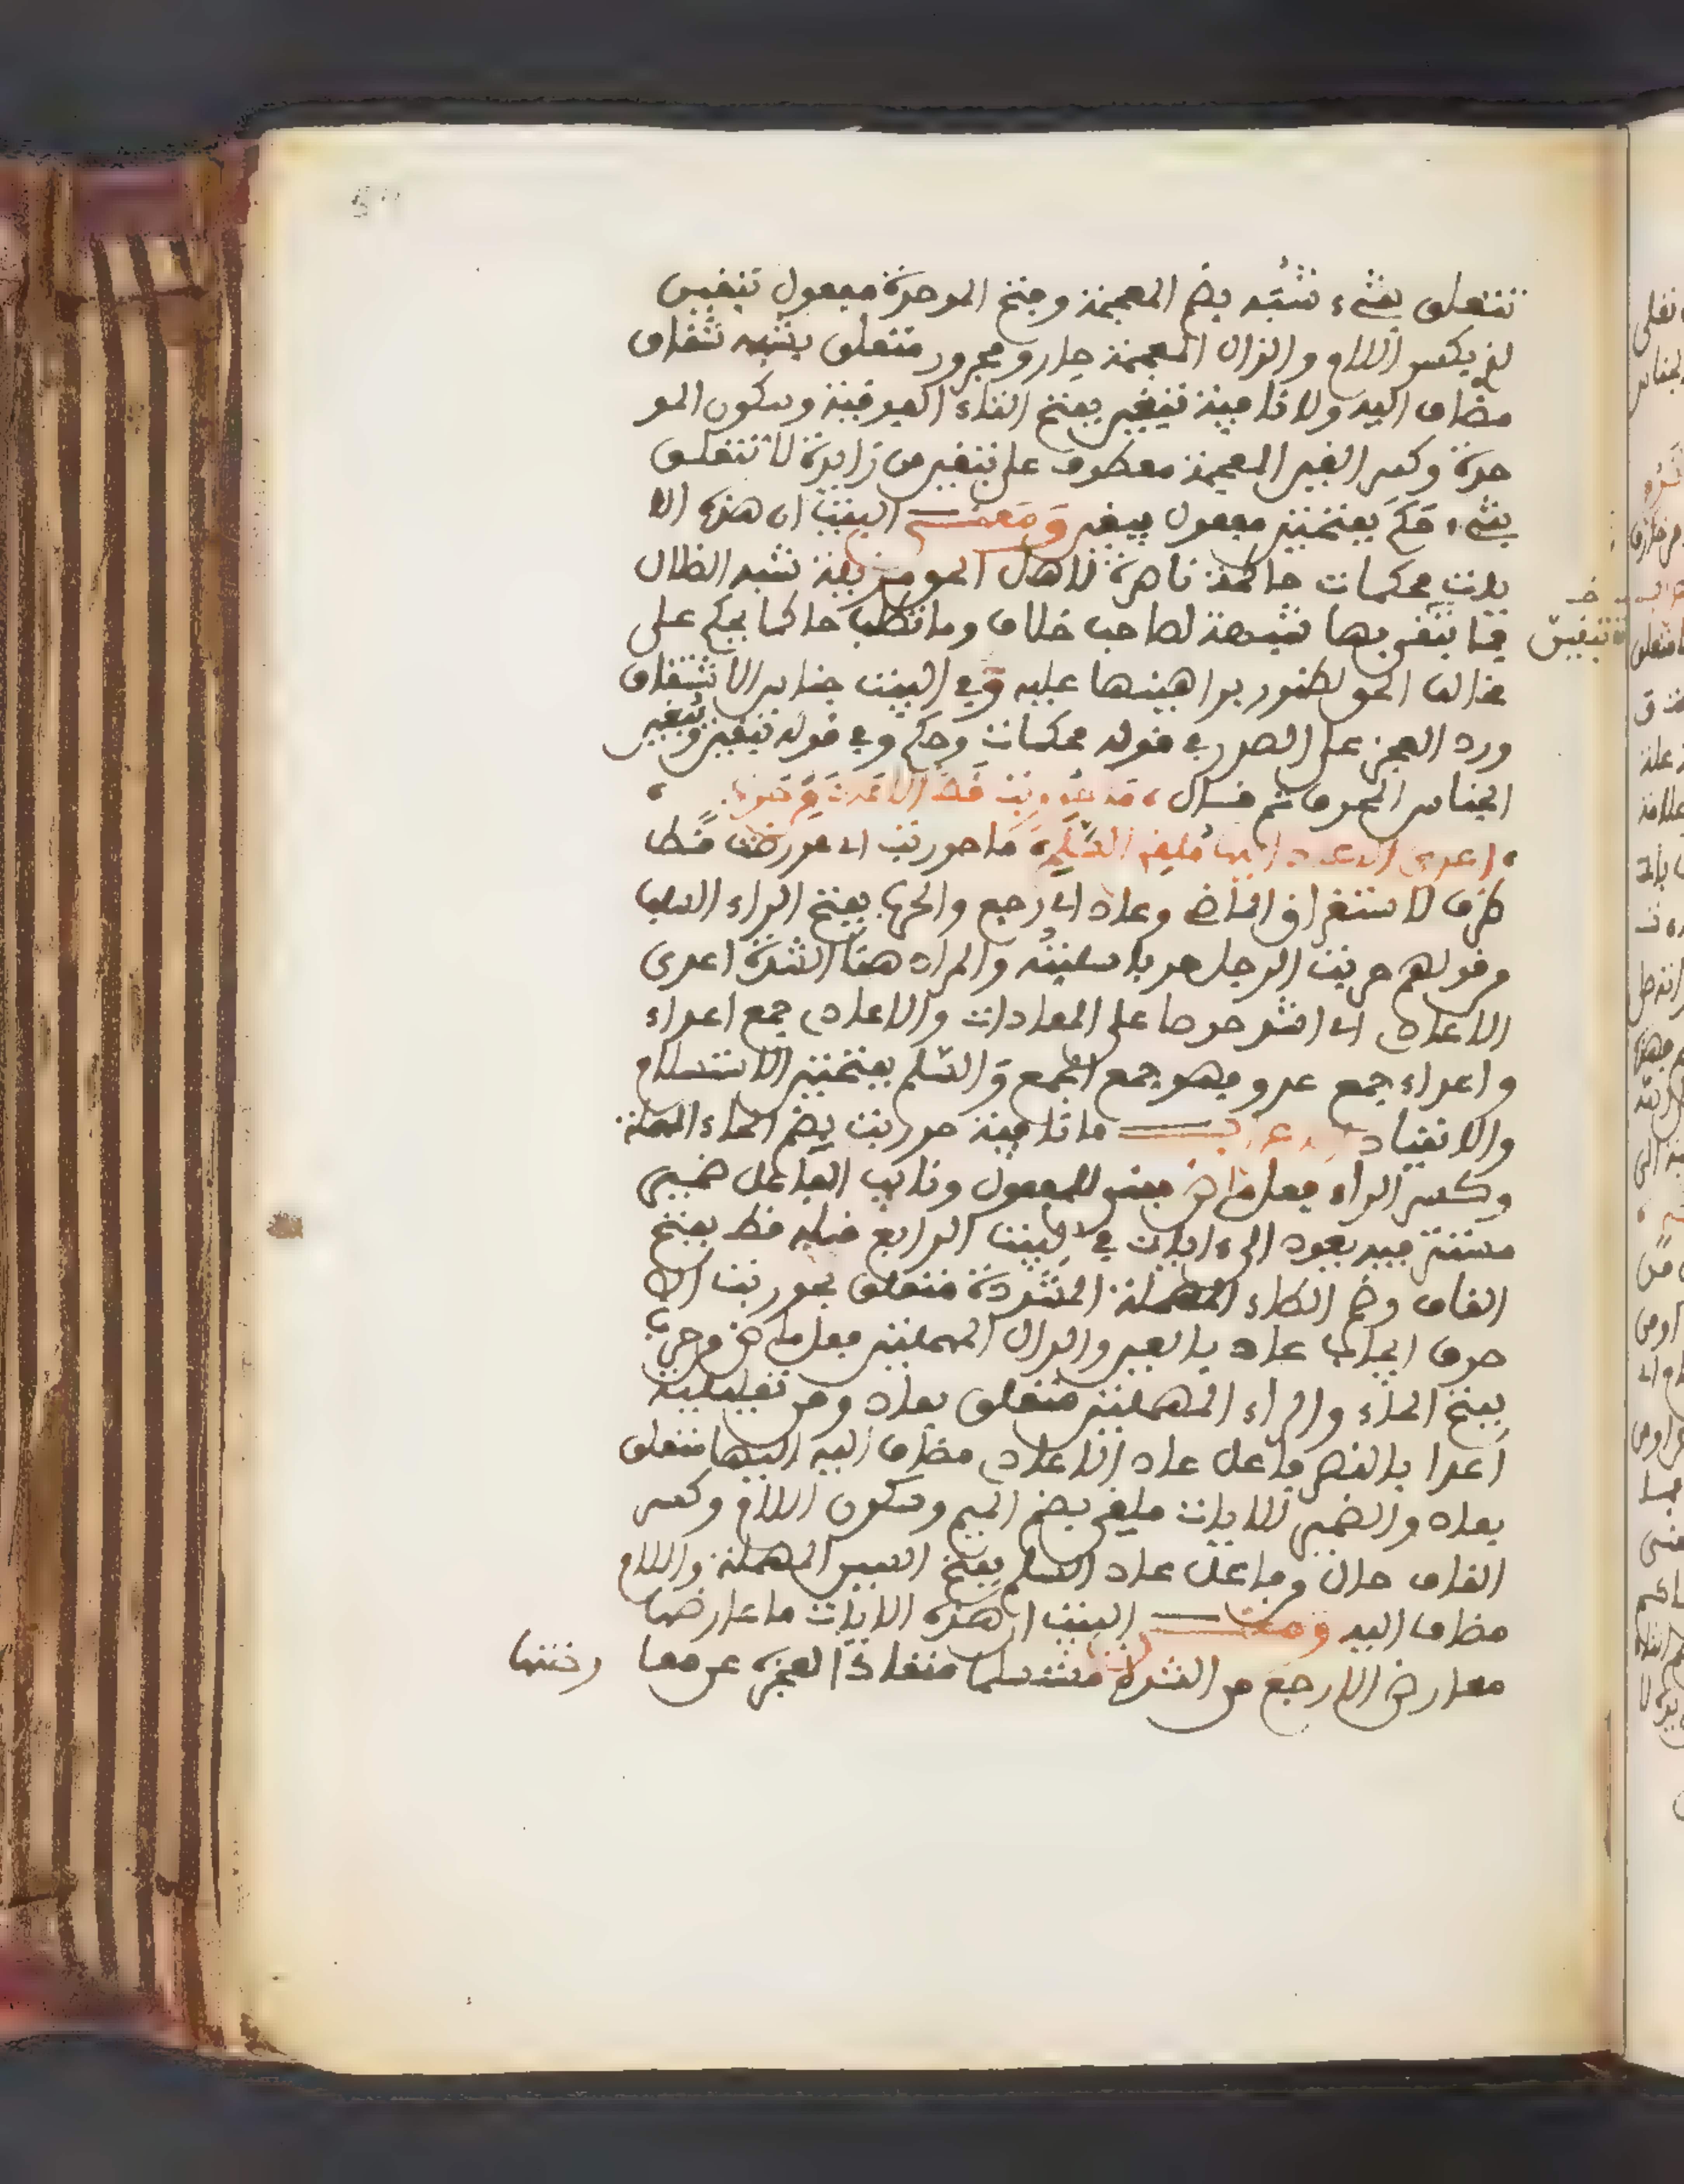 تتعلق بشيء شُبَه بضم المعجمة وفتح الموحدة مفعول تبقين
لذي بكسر اللام والذال المعجمة جار ومجرور متعلق بشبه شقاق
مضاف اليه ولا نافية تبغين بفتح التاء الفوقية وسكون المو
حدة وكسر الغين المعجمة معطوف على تبقين من زايدة لا تتعلق
بشيء حَكَم بفتحتين مفعول تبغين ومعنى البيت ان هذه الا
يات محكمات حاكمة ناصرة لاهل الحق مزيلة شبه الضلال
فما تبقى بها شبهة لصاحب خلاف وما تطلب حاكما يحكم على
مخالف الحق لظهور براهينها عليه وفي البيت جناس الاشتقاق
ورد العجز على الصدر في قوله محكمات وحكم وفي قوله تبقين وتبغين
الجناس المحرف ثم قال ، ما حوربت قط الا عاد من حرب ،
، اعدى الاعادي اليها ملقي السلم ، ما حوربت اي عورضت قط
ظرف لاستغراق الماضي وعاد اي رجع والحرب بفتح الراء السلب
من قولهم حربت الرجل حربا سلبته والمراد هنا الشدة اعدى
الاعادي اي اشد حرصا على المعادات والاعادي جمع اعداء
واعداء جمع عدو فهو جمع الجمع والسلم بفتحتين الاستسلام
والانقياد الاعراب ما نافية حوربت بضم الحاء المهملة
وكسر الراء فعل ماض مبني للمفعول ونائب الفاعل ضمير
مستتر فيه يعود الى ءايات في البيت الرابع قبله قط بفتح
القاف وضم الطاء المهملة المشددة متعلق بحوربت الا
حرف ايجاب عاد بالعين والدال المهملتين فعل ماض من حرب
بفتح الحاء والراء المهملتين متعلق بعاد ومن تعليلية
اعدا بالقصر فاعل عاد الاعادي مضاف اليه اليها متعلق
بعاد والضمير للايات ملقي بضم الميم وسكون اللام وكسر
القاف حال من فاعل عاد السلم بفتح السين المهملة واللام
مضاف اليه ومعنى البيت ان هذه الايات ما عارضها
معارض الا رجع من الشدة مستسلما منقادا لعجزه عن معا
رضتها
خـ
تبقين